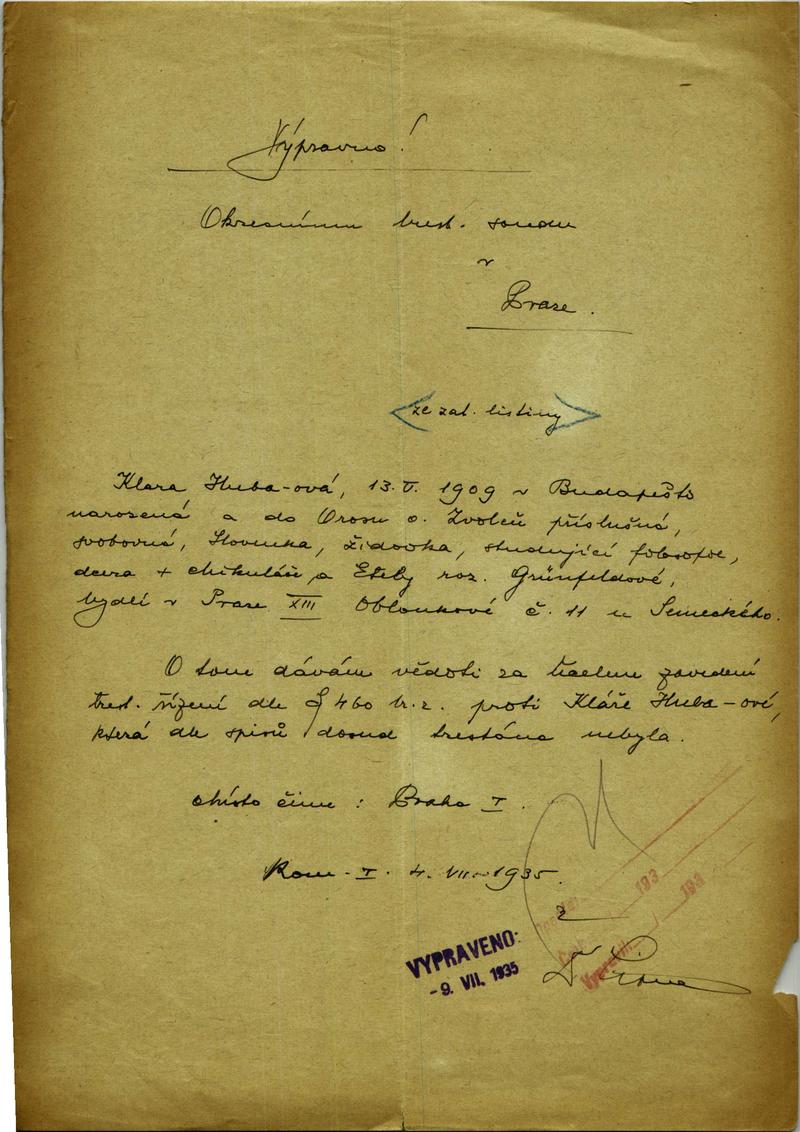 Výpravno!
Okresnímu trest. soudu
v
Praze.
ze zat. listiny
Klara Huba-ová, 13.V. 1909 v Budapešto
narozená a do Orosu o. Zvoleň příslušná,
svobodná, Slovenka, židovka, studující filosofie,
dcera + Mikuláše a Etely roz. Grünfeldové,
bydlí v Praze XIII Obloukové č. 11 u Semeckého.
O tom dávám věděti za účelem zavedení
trest. řízení dle § 460 tr. z. proti Kláře Huba-ové,
která dle spisů dosud trestána nebyla.
Místo činu: Praha I.
Kom-I. 4. VII. 1935.
VYPRAVENO:
-9. VII. 1935
193
193